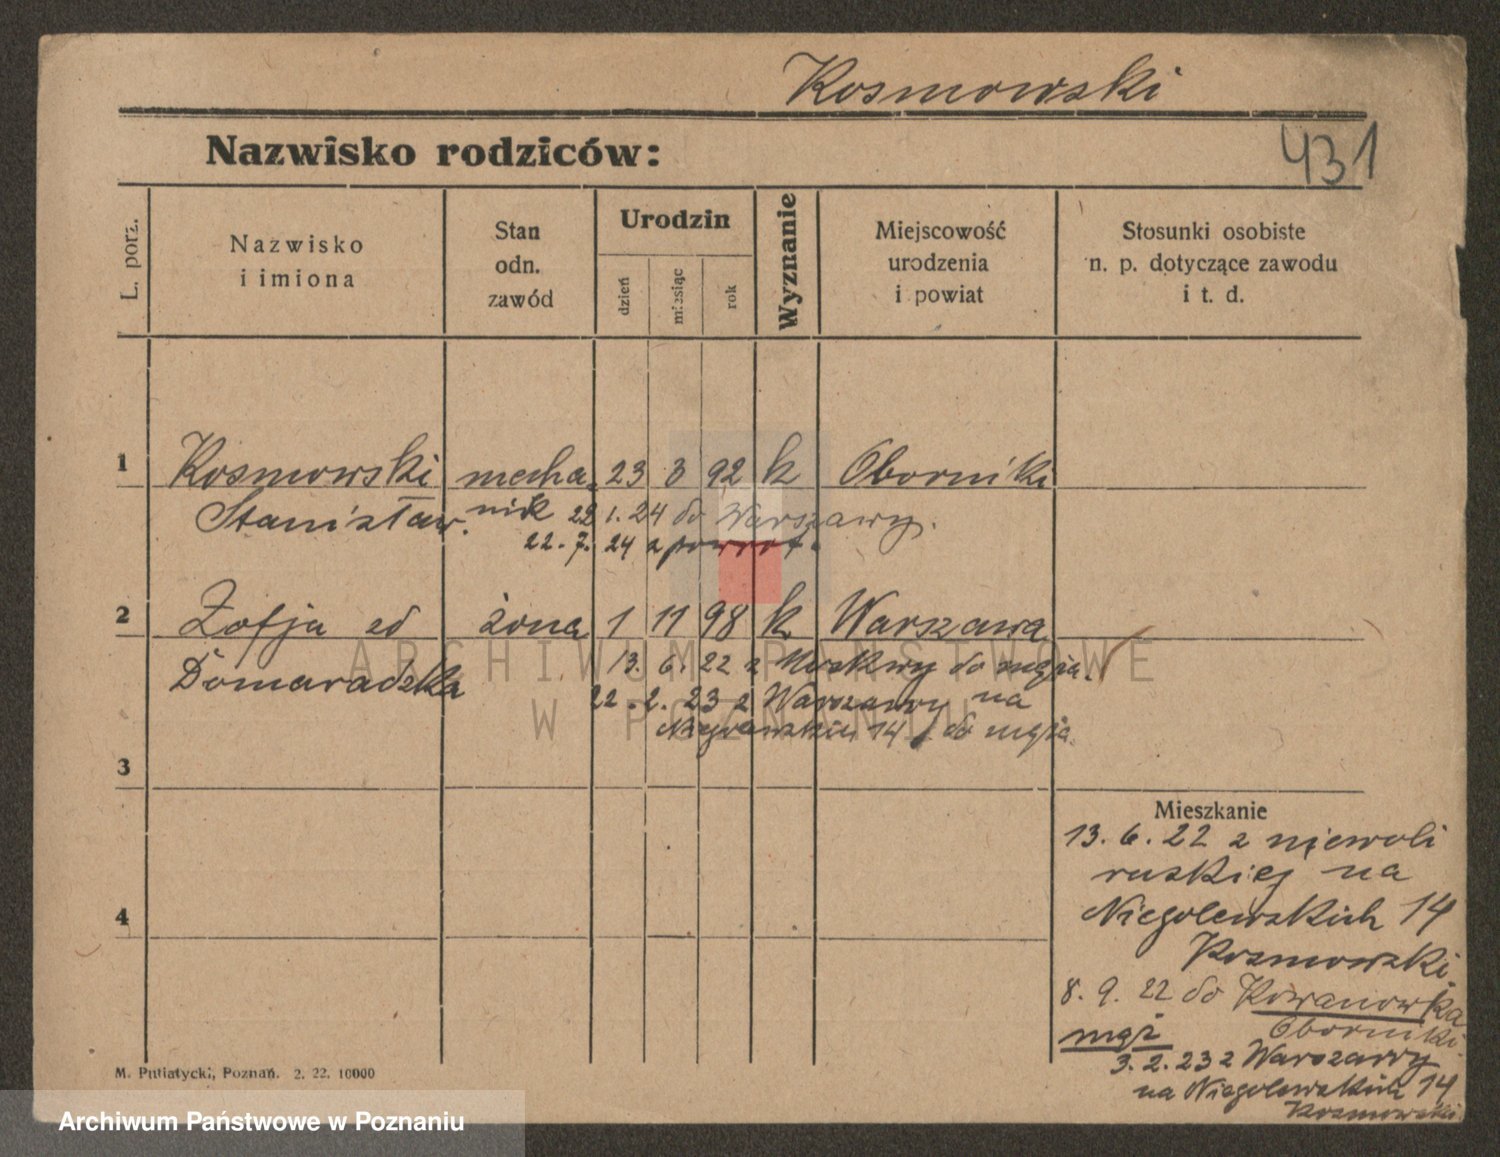 Kosmowski
Nazwisko rodziców:
431
L. porz.
Nazwisko
i imiona
Stan
odn.
zawód
Urodzin
dzień
miesiąc
rok
Wyznanie
Miejscowość
urodzenia
i powiat
Stosunki osobiste
n. p. dotyczące zawodu
i t. d.
1 Kosmowski mecha 23 3 92 k Oborniki
Stanisław. nik 22 1. 24 do Warszawy.
22. 7. 24 z powrot.
2 Zofja zd żona 1 11 98 k Warszawa
Domaradzka 13. 6. 22 z Moskwy do męża.
22. 2. 23 z Warszawy na
Niegolewskich 14 do męża.
3
Mieszkanie
13. 6. 22 z niewoli
ruskiej na
Niegolewskich 14
4
Kosmowski
8. 9. 22 do Kowanowka
Oborniki.
mąż
3. 2. 23 z Warszawy
na Niegolewskich 14
Kosmowski
M. Putiatycki, Poznań. 2. 22. 10000
ARCHIWUM PAŃSTWOWE
W POZNANIU
Archiwum Państwowe w Poznaniu